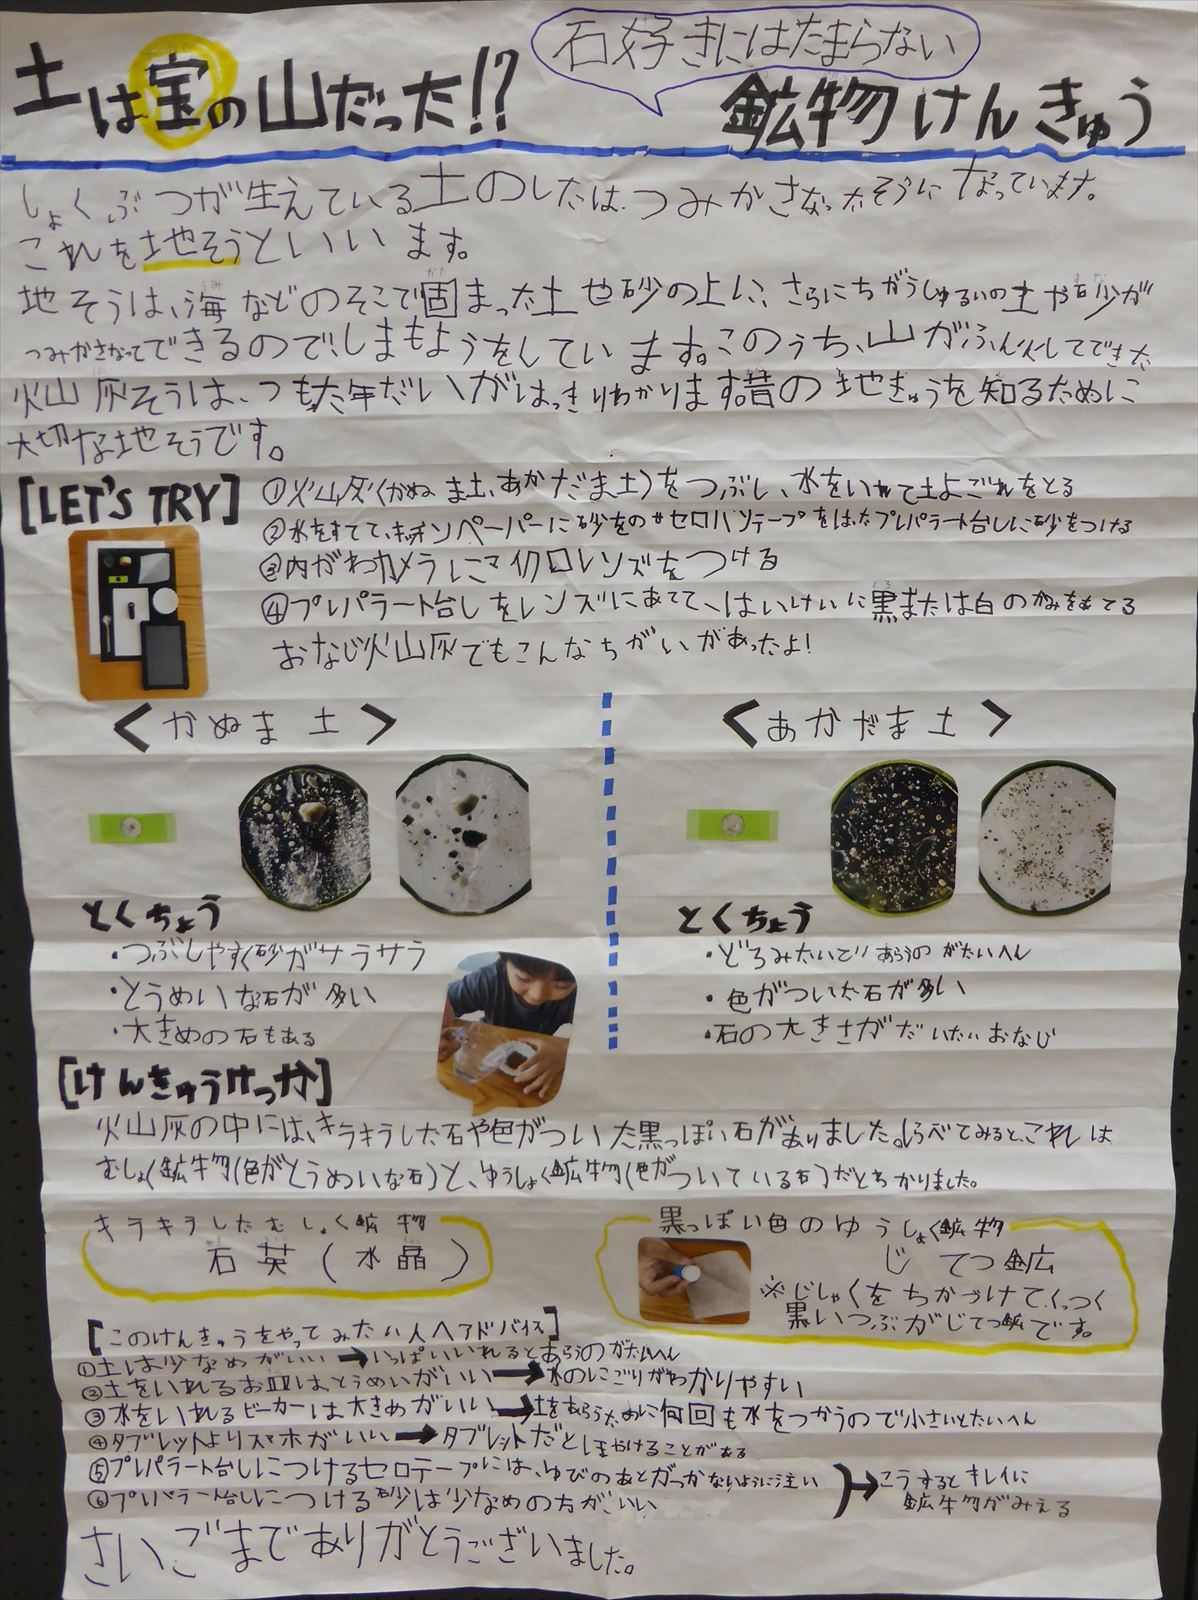 石好きにはたまらない
土は宝の山だった!?
鉱物けんきゅう
しょくぶつが生えている土のしたは、つみかさなったそうになっています。
これを地そうといいます。
地そうは、海などのそこで固まった土や砂の上に、さらにちがうしゅるいの土や砂が
つみかさなってできるので、しまもようをしています。このうち、山がふん火してできた
火山灰そうは、つもった年だいがはっきりわかります。昔の地きゅうを知るために
大切な地そうです。
[LET'S TRY]
①火山灰(かぬま土、あかだま土)をつぶし、水をいれて土よごれをとる
②水をすてて、キッチンペーパーに砂をのせセロハンテープをはったプレパラート台しに砂をつける
③内がわカメラにマイクロレンズをつける
④プレパラート台しをレンズにあてて、はいけいに黒または白のかみをあてる
おなじ火山灰でもこんなちがいがあったよ!
<かぬま土>
<あかだま土>
とくちょう
・つぶしやすく砂がサラサラ
・とうめいな石が多い
・大きめの石もある
とくちょう
・どろみたいで!!あらうのがたいへん
・色がついた石が多い
・石の大きさがだいたいおなじ
[けんきゅうけっか]
火山灰の中には、キラキラした石や色がついた黒っぽい石がありました。しらべてみると、これは
むしょく鉱物(色がとうめいな石)と、ゆうしょく鉱物(色がついている石)だとわかりました。
キラキラしたむしょく鉱物
石英(水晶)
黒っぽい色のゆうしょく鉱物
じてつ鉱
※じしゃくをちかづけてくっつく
黒いつぶがじてつ鉱です。
[このけんきゅうをやってみたい人へアドバイス]
①土は少なめがいい→いっぱいいれるとあらうのがたいへん
②土をいれるお皿はとうめいがいい→水のにごりがわかりやすい
③水をいれるビーカーは大きめがいい→土をあらうために何回も水をつかうので小さいとたいへん
④タブレットよりスマホがいい→タブレットだとぼやけることがある
⑤プレパラート台しにつけるセロテープには、ゆびのあとがつかないように注い
⑥プレパラート台しにつける砂は少なめの方がいい
→こうするとキレイに
鉱物がみえる
さいごまでありがとうございました。